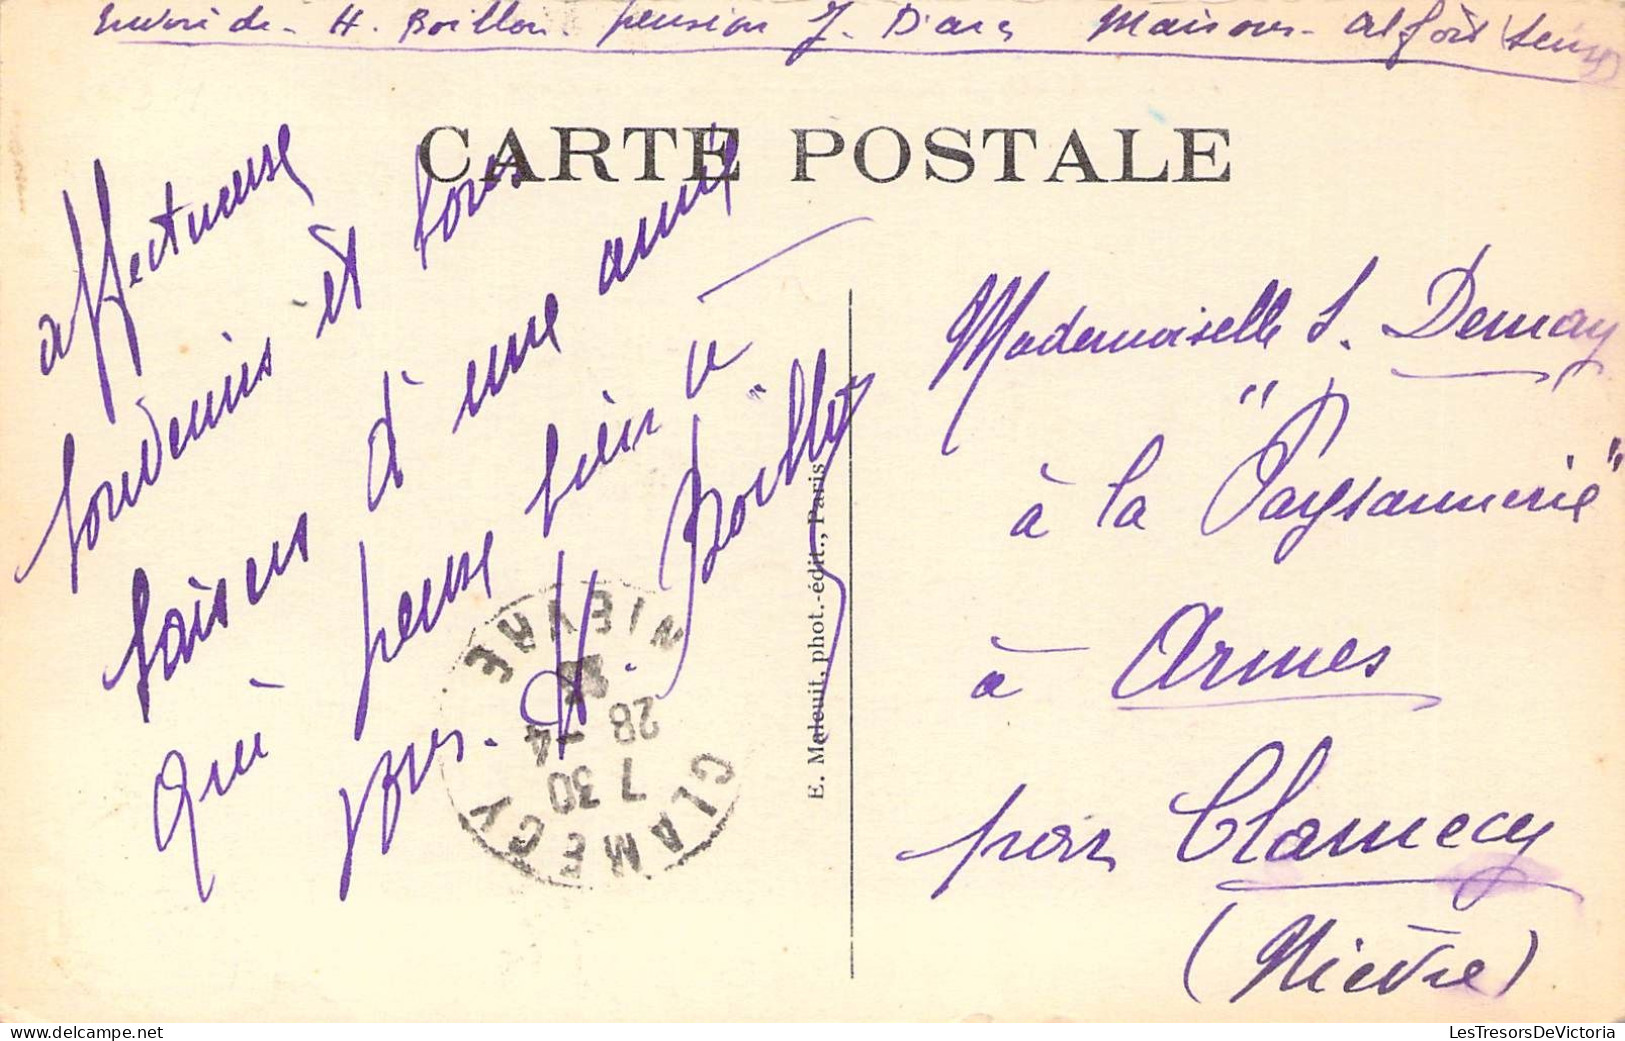 Envoi de - H. Boillon. pension J. D'arc Maisons-Alfort (Seine)
CARTE POSTALE
affectueux
souvenirs et bons
baisers d'une amie
qui pense bien à
vous. H. Boillon
Mademoiselle S. Demay
à la "Paysannerie"
à Armes
par Clamecy
(Nièvre)
E. Maleuit, phot.-édit., Paris
CLAMECY
7 30
28 -4
NIEVRE